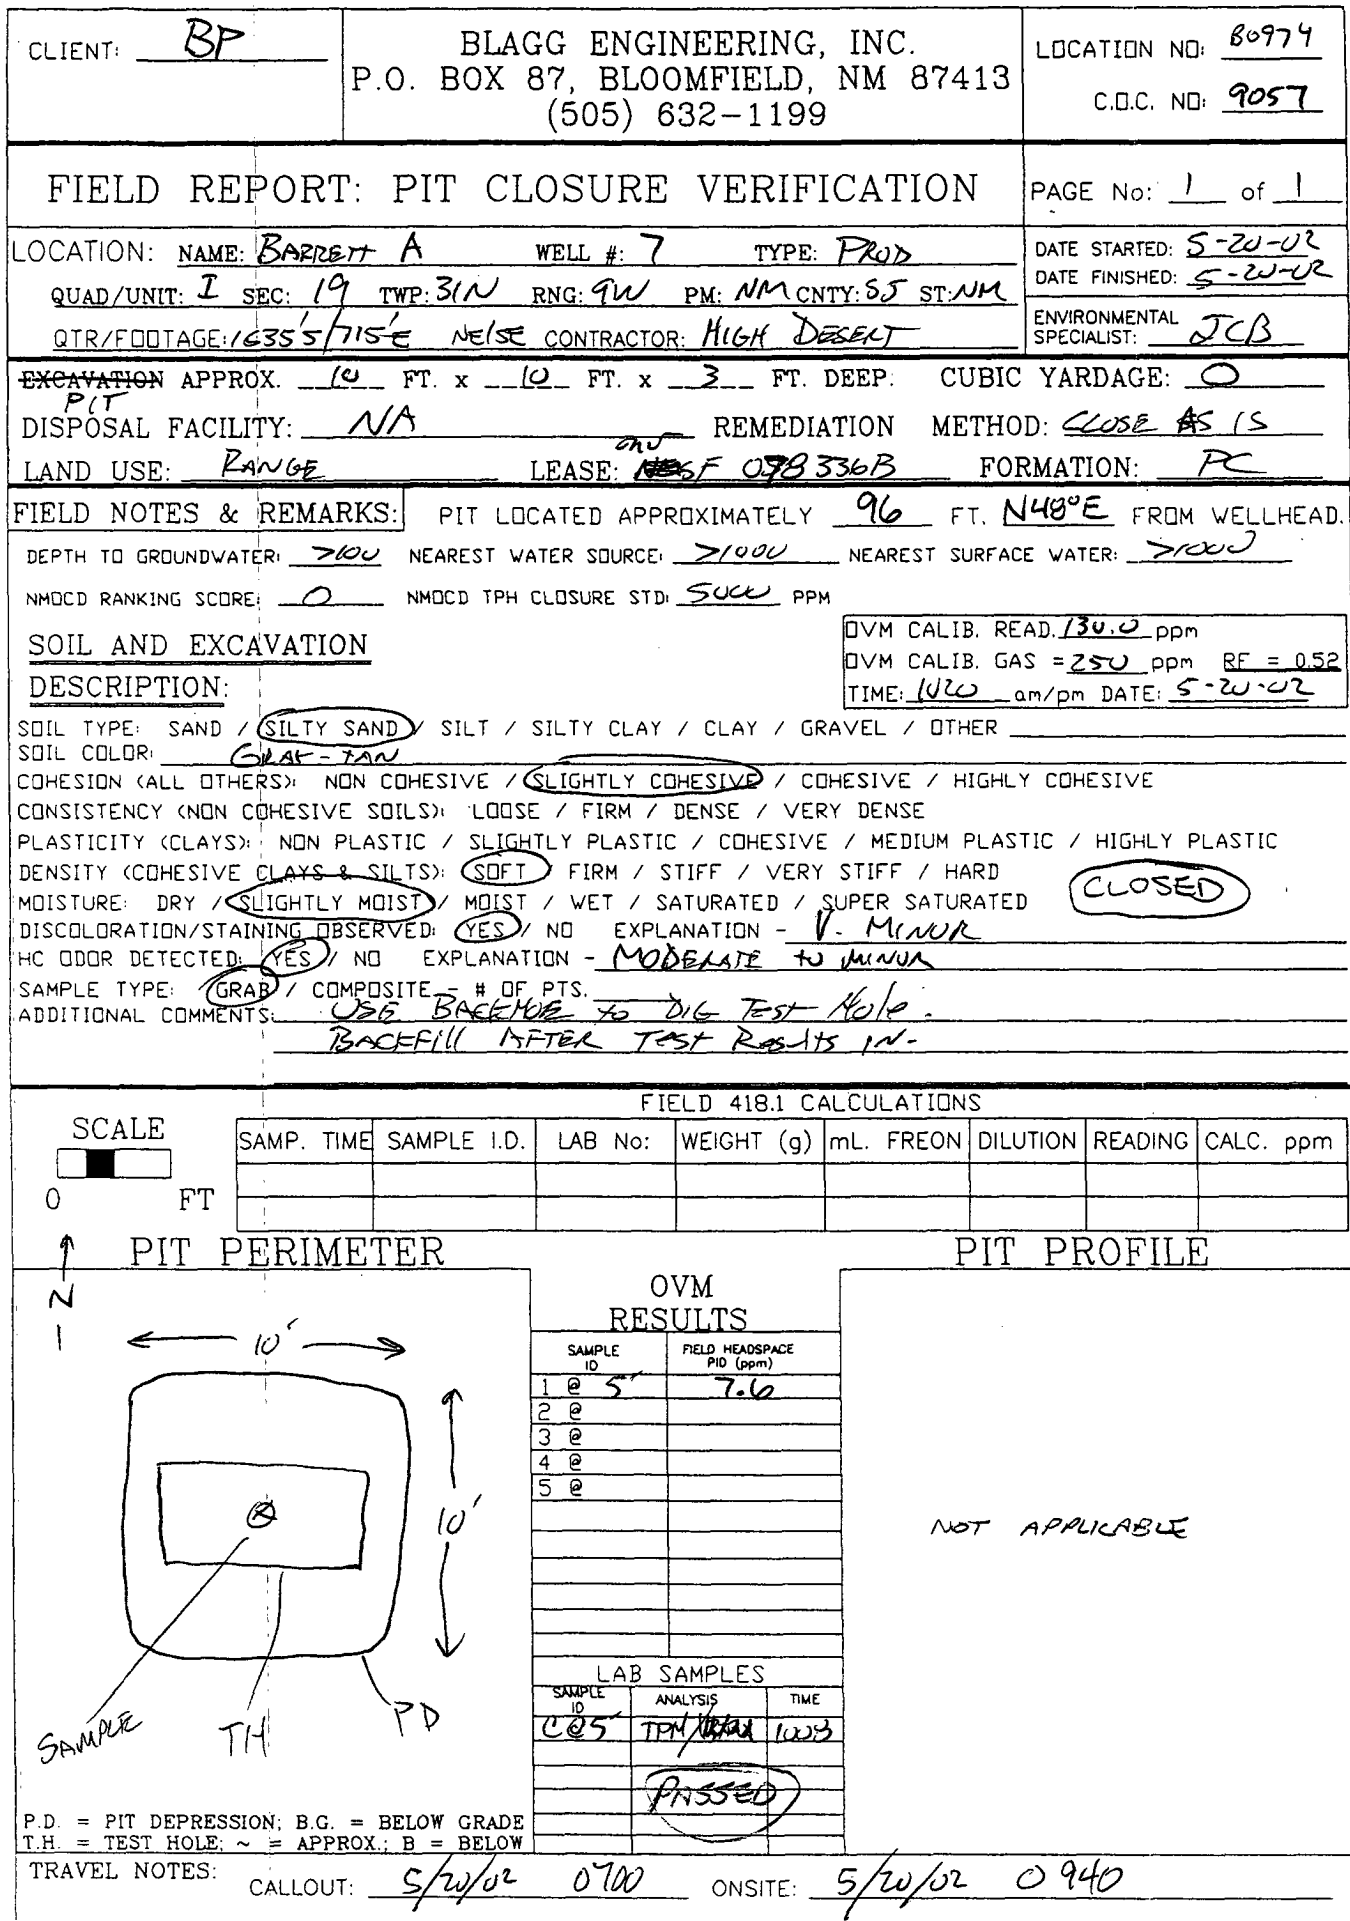 CLIENT: BP
BLAGG ENGINEERING, INC.
P.O. BOX 87, BLOOMFIELD, NM 87413
(505) 632-1199
LOCATION NO: B0974
C.O.C. NO: 9057
FIELD REPORT: PIT CLOSURE VERIFICATION
PAGE No: 1 of 1
LOCATION: NAME: BARRETT A WELL #: 7 TYPE: PROD
QUAD/UNIT: I SEC: 19 TWP: 31N RNG: 9W PM: NM CNTY: SJ ST: NM
QTR/FOOTAGE: 1635'S/715'E NE/SE CONTRACTOR: HIGH DESERT
DATE STARTED: 5-20-02
DATE FINISHED: 5-20-02
ENVIRONMENTAL SPECIALIST: JCB
EXCAVATION APPROX. 10 FT. x 10 FT. x 3 FT. DEEP. CUBIC YARDAGE: 0
PIT
DISPOSAL FACILITY: NA REMEDIATION METHOD: CLOSE AS IS
LAND USE: RANGE LEASE: SF 078336B FORMATION: PC
FIELD NOTES & REMARKS: PIT LOCATED APPROXIMATELY 96 FT. N48°E FROM WELLHEAD.
DEPTH TO GROUNDWATER: >100 NEAREST WATER SOURCE: >1000 NEAREST SURFACE WATER: >1000
NMOCD RANKING SCORE: 0 NMOCD TPH CLOSURE STD: 5000 PPM
SOIL AND EXCAVATION
DESCRIPTION:
OVM CALIB. READ. 130.0 ppm
OVM CALIB. GAS = 250 ppm RF = 0.52
TIME: 1020 am/pm DATE: 5-20-02
SOIL TYPE: SAND / SILTY SAND / SILT / SILTY CLAY / CLAY / GRAVEL / OTHER
SOIL COLOR: GRAY - TAN
COHESION (ALL OTHERS): NON COHESIVE / SLIGHTLY COHESIVE / COHESIVE / HIGHLY COHESIVE
CONSISTENCY (NON COHESIVE SOILS): LOOSE / FIRM / DENSE / VERY DENSE
PLASTICITY (CLAYS): NON PLASTIC / SLIGHTLY PLASTIC / COHESIVE / MEDIUM PLASTIC / HIGHLY PLASTIC
DENSITY (COHESIVE CLAYS & SILTS): SOFT / FIRM / STIFF / VERY STIFF / HARD
MOISTURE: DRY / SLIGHTLY MOIST / MOIST / WET / SATURATED / SUPER SATURATED
CLOSED
DISCOLORATION/STAINING OBSERVED: YES / NO EXPLANATION - V. MINOR
HC ODOR DETECTED: YES / NO EXPLANATION - MODERATE to MINOR
SAMPLE TYPE: GRAB / COMPOSITE - # OF PTS.
ADDITIONAL COMMENTS: USE BACKHOE to DIG TEST Hole.
BACKFill AFTER TEST Results IN-
FIELD 418.1 CALCULATIONS
SCALE
0 FT
SAMP. TIME SAMPLE I.D. LAB No: WEIGHT (g) mL. FREON DILUTION READING CALC. ppm
PIT PERIMETER
N
10'
10'
SAMPLE
TH
PD
P.D. = PIT DEPRESSION; B.G. = BELOW GRADE
T.H. = TEST HOLE; ~ = APPROX.; B = BELOW
OVM
RESULTS
SAMPLE ID FIELD HEADSPACE PID (ppm)
1 @ 5' 7.6
2 @
3 @
4 @
5 @
LAB SAMPLES
SAMPLE ID ANALYSIS TIME
C@5' TPH/
PASSED
PIT PROFILE
NOT APPLICABLE
TRAVEL NOTES: CALLOUT: 5/20/02 0700 ONSITE: 5/20/02 0940